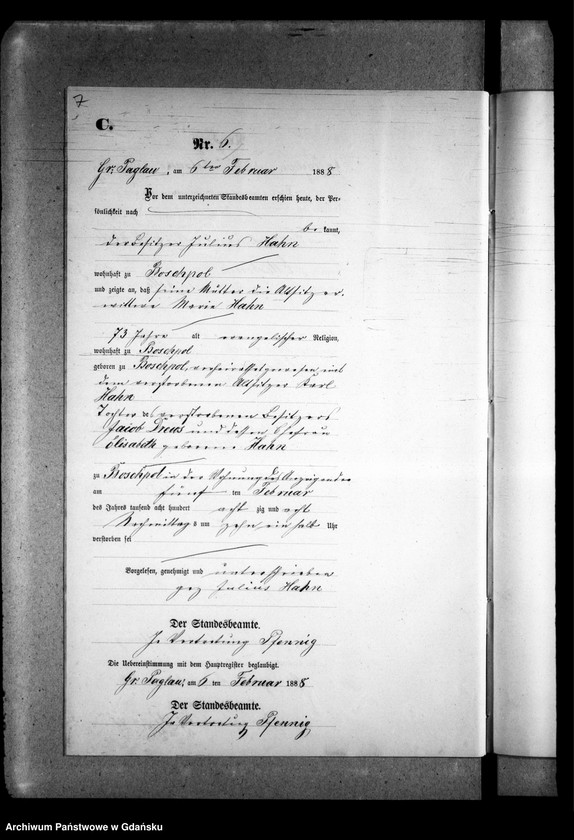 7
C.
Nr. 6.
Gr. Paglau, am 6ten Februar 1888
Vor dem unterzeichneten Standesbeamten erschien heute, der Per-
sönlichkeit nach
bekannt,
der Besitzer Julius Hahn
wohnhaft zu Boschpol
und zeigte an, daß seine Mutter die Altsitzer-
wittwe Marie Hahn
73 Jahre alt evangelischer Religion,
wohnhaft zu Boschpol
geboren zu Boschpol, verheirathet gewesen mit
dem verstorbenen Altsitzer Karl
Hahn
Tochter des verstorbenen Besitzers
Jacob und dessen Ehefrau
Elisabeth geborene Hahn
zu Boschpol in der Wohnung des Anzeigenden
am fünf ten Februar
des Jahres tausend acht hundert acht zig und acht
Nachmittags um zehn ein halb Uhr
verstorben sei
Vorgelesen, genehmigt und unterschrieben
gez Julius Hahn
Der Standesbeamte.
In Vertretung Pfennig
Die Uebereinstimmung mit dem Hauptregister beglaubigt.
Gr. Paglau, am 6 ten Februar 1888
Der Standesbeamte.
In Vertretung Pfennig
Archiwum Państwowe w Gdańsku